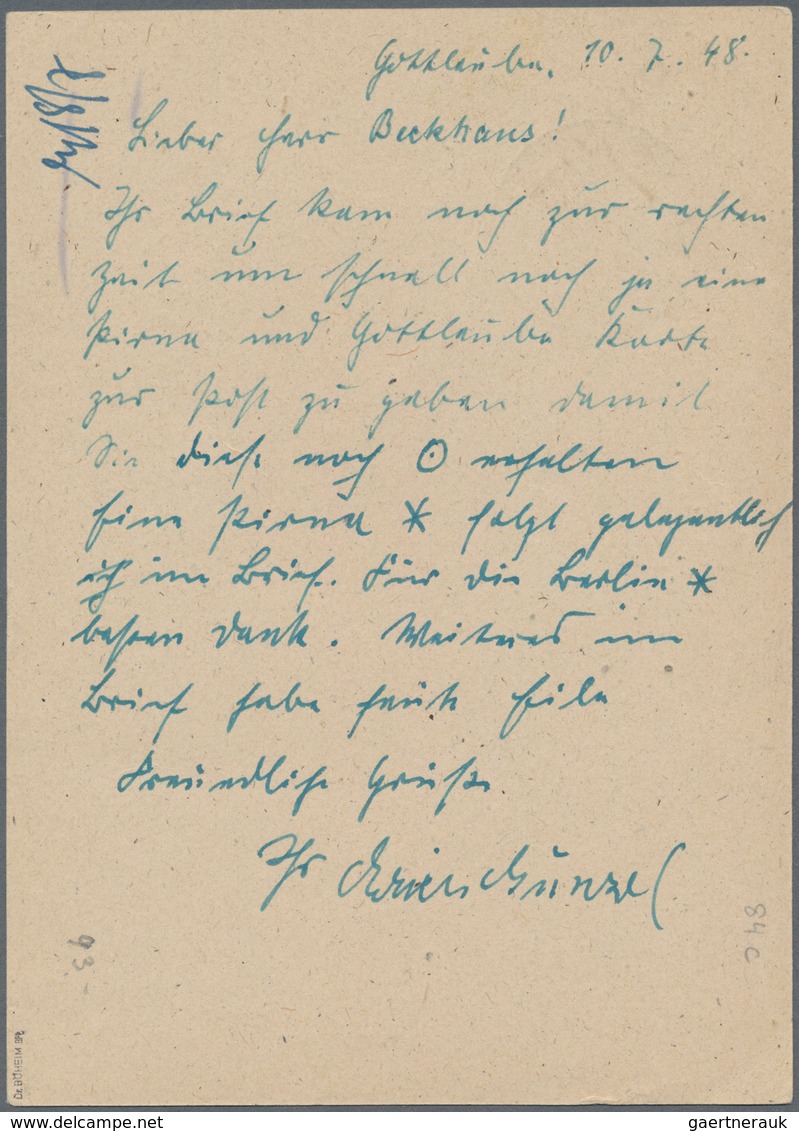 Gottleuba, 10. 7. 48.
Lieber Herr Beckhaus!
Ihr Brief kam noch zur rechten
Zeit um schnell noch je eine
Pirna und Gottleuba Karte
zur Post zu geben damit
Sie diese noch ʘ erhalten
Eine Pirna * folgt gelegentlich
im Brief. Für die Berlin *
besten Dank. Weiteres im
Brief habe heute Eile
Freundliche Grüße
Ihr
84 c
93.-
Dr. BÖHEIM BPP
www.delcampe.net
gaertnerauk